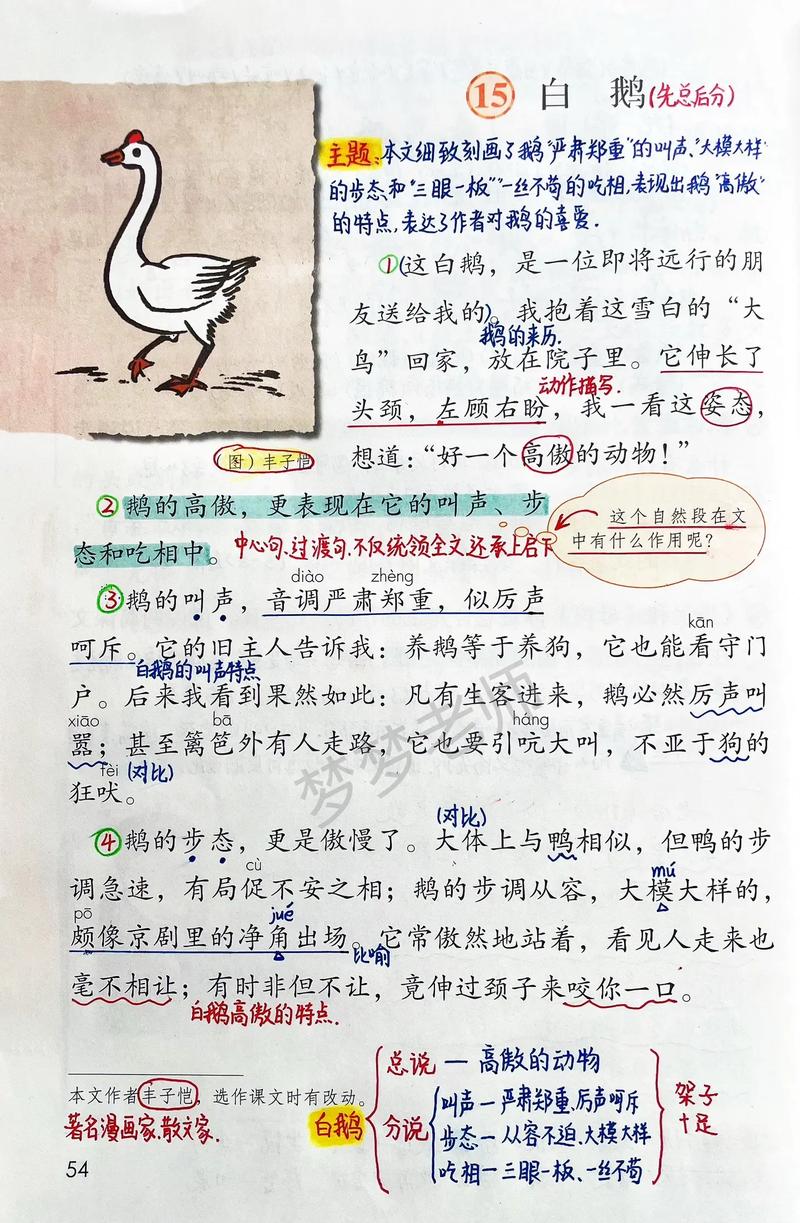 15 白 鹅(先总后分)
主题、本文细致刻画了鹅"严肃郑重"的叫声、"大模大样"
的步态、和"三眼一板""一丝不苟的吃相,表现出鹅"高傲"
的特点,表达了作者对鹅的喜爱.
①(这白鹅,是一位即将远行的朋
友送给我的)。我抱着这雪白的“大
鹅的来历.
鸟”回家,放在院子里。它伸长了
动作描写.
头颈,左顾右盼,我一看这姿态,
想道:“好一个高傲的动物!”
(图)丰子恺
②鹅的高傲,更表现在它的叫声、步
态和吃相中。中心句、过渡句、不仅统领全文还承上启下
这个自然段在文
中有什么作用呢?
diào zhèng
③鹅的叫声,音调严肃郑重,似厉声
kān
呵斥。它的旧主人告诉我:养鹅等于养狗,它也能看守门
白鹅的叫声特点
户。后来我看到果然如此:凡有生客进来,鹅必然厉声叫
xiāo bā háng
嚣;甚至篱笆外有人走路,它也要引吭大叫,不亚于狗的
fèi (对比)
狂吠。
梦梦老师
(对比)
④鹅的步态,更是傲慢了。大体上与鸭相似,但鸭的步
cù mú
调急速,有局促不安之相;鹅的步调从容,大模大样的,
pō jué
颇像京剧里的净角出场。它常傲然地站着,看见人走来也
比喻
毫不相让;有时非但不让,竟伸过颈子来咬你一口。
白鹅高傲的特点.
本文作者丰子恺,选作课文时有改动。
著名漫画家.散文家.
白鹅
总说 — 高傲的动物
分说
叫声 — 严肃郑重、厉声呵斥
步态 — 从容不迫、大模大样
吃相 — 三眼一板、一丝不苟
架子
十足
54